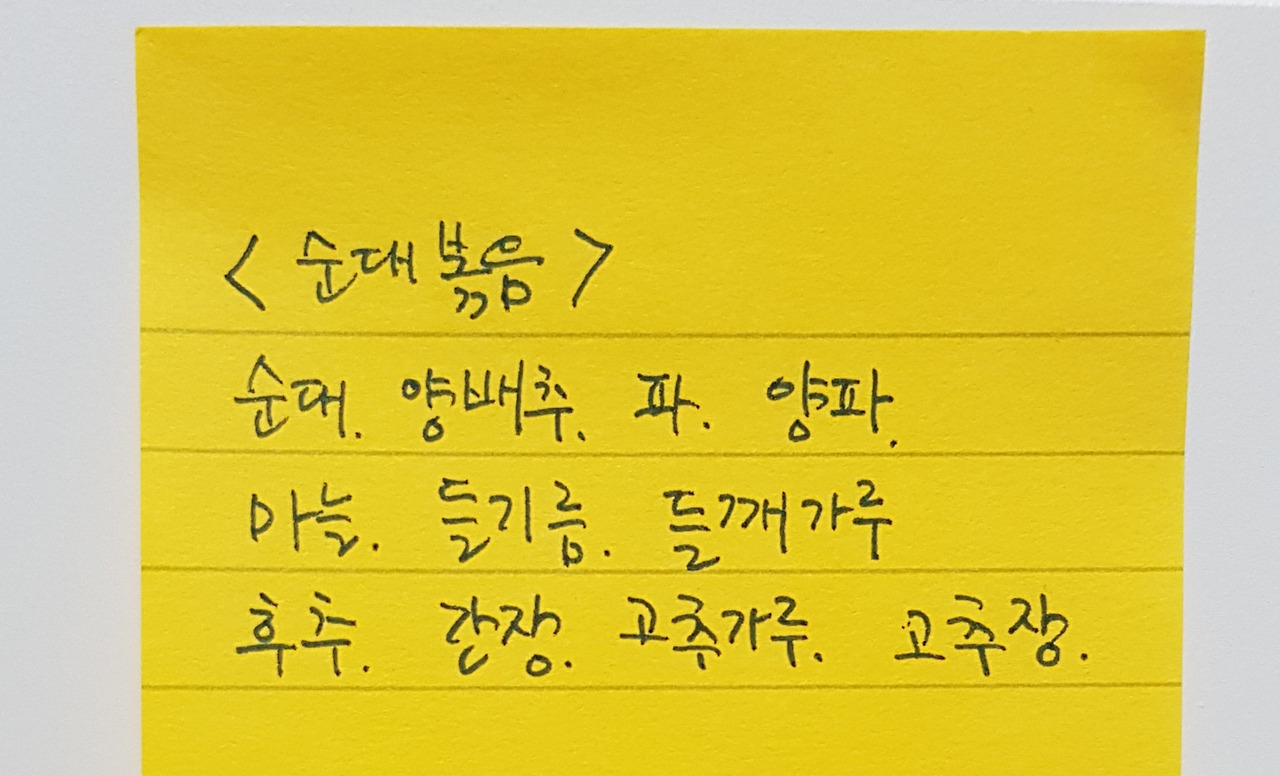 < 순대볶음 >
순대. 양배추. 파. 양파.
마늘. 들기름. 들깨가루
후추. 간장. 고추가루. 고추장.